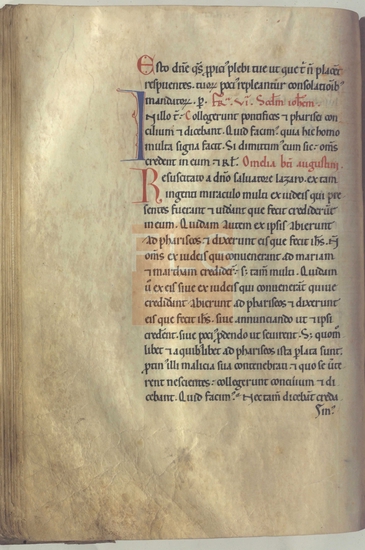 Esto dn̄e q̄s ꝓpici᷒ plebi tue ut que t̄ n̄ placet
respuentes. tuoꝝ poci᷒ repleantur consolatioīb᷒
mandatoꝝ. ꝑ. Fr̄. VI. Scd̄m ioh̄em.
In illo t̄. Collegerunt pontifices ⁊ pharisei con
cilium ⁊ dicebant. Quid facim᷒. quia hic homo
multa signa facit. Si dimittim᷒ eum sic. om̄s
credent in eum ⁊ rl̄. Omelia bēi augustini.
Resuscitato a dn̄o saluatore lazaro. ex tam
ingenti miraculo multi ex iudeis qui pre
sentes fuerant ⁊ uidant que fecit crediderūt
in eum. Quidam autem ex ipsis abierunt
ad phariseos ⁊ dixerunt eis que fecit ih̄s.
om̄s ex iudeis qui conuenerant ad mariam
⁊ martham credider̄. s; tam̄ multi. Quidam
ū ex eis siue ex iudeis qui conuenerāt. quiue
credidīnt abierunt ad phariseos ⁊ dixerunt
eis que fecit ih̄s. siue annunciando ut ⁊ ipsi
credēnt. siue poci᷒ ꝓdendo ut seuirent. S; quom̄
libet ⁊ a quib᷒libet ad phariseos ista plata sunt.
ꝓtin᷒ illi malicia sua contenebrati ⁊ quo se ūte
rent nescientes. collegerunt concilium ⁊ di
cebant. Quid facim᷒. Nec tam̄ dicebāt creda